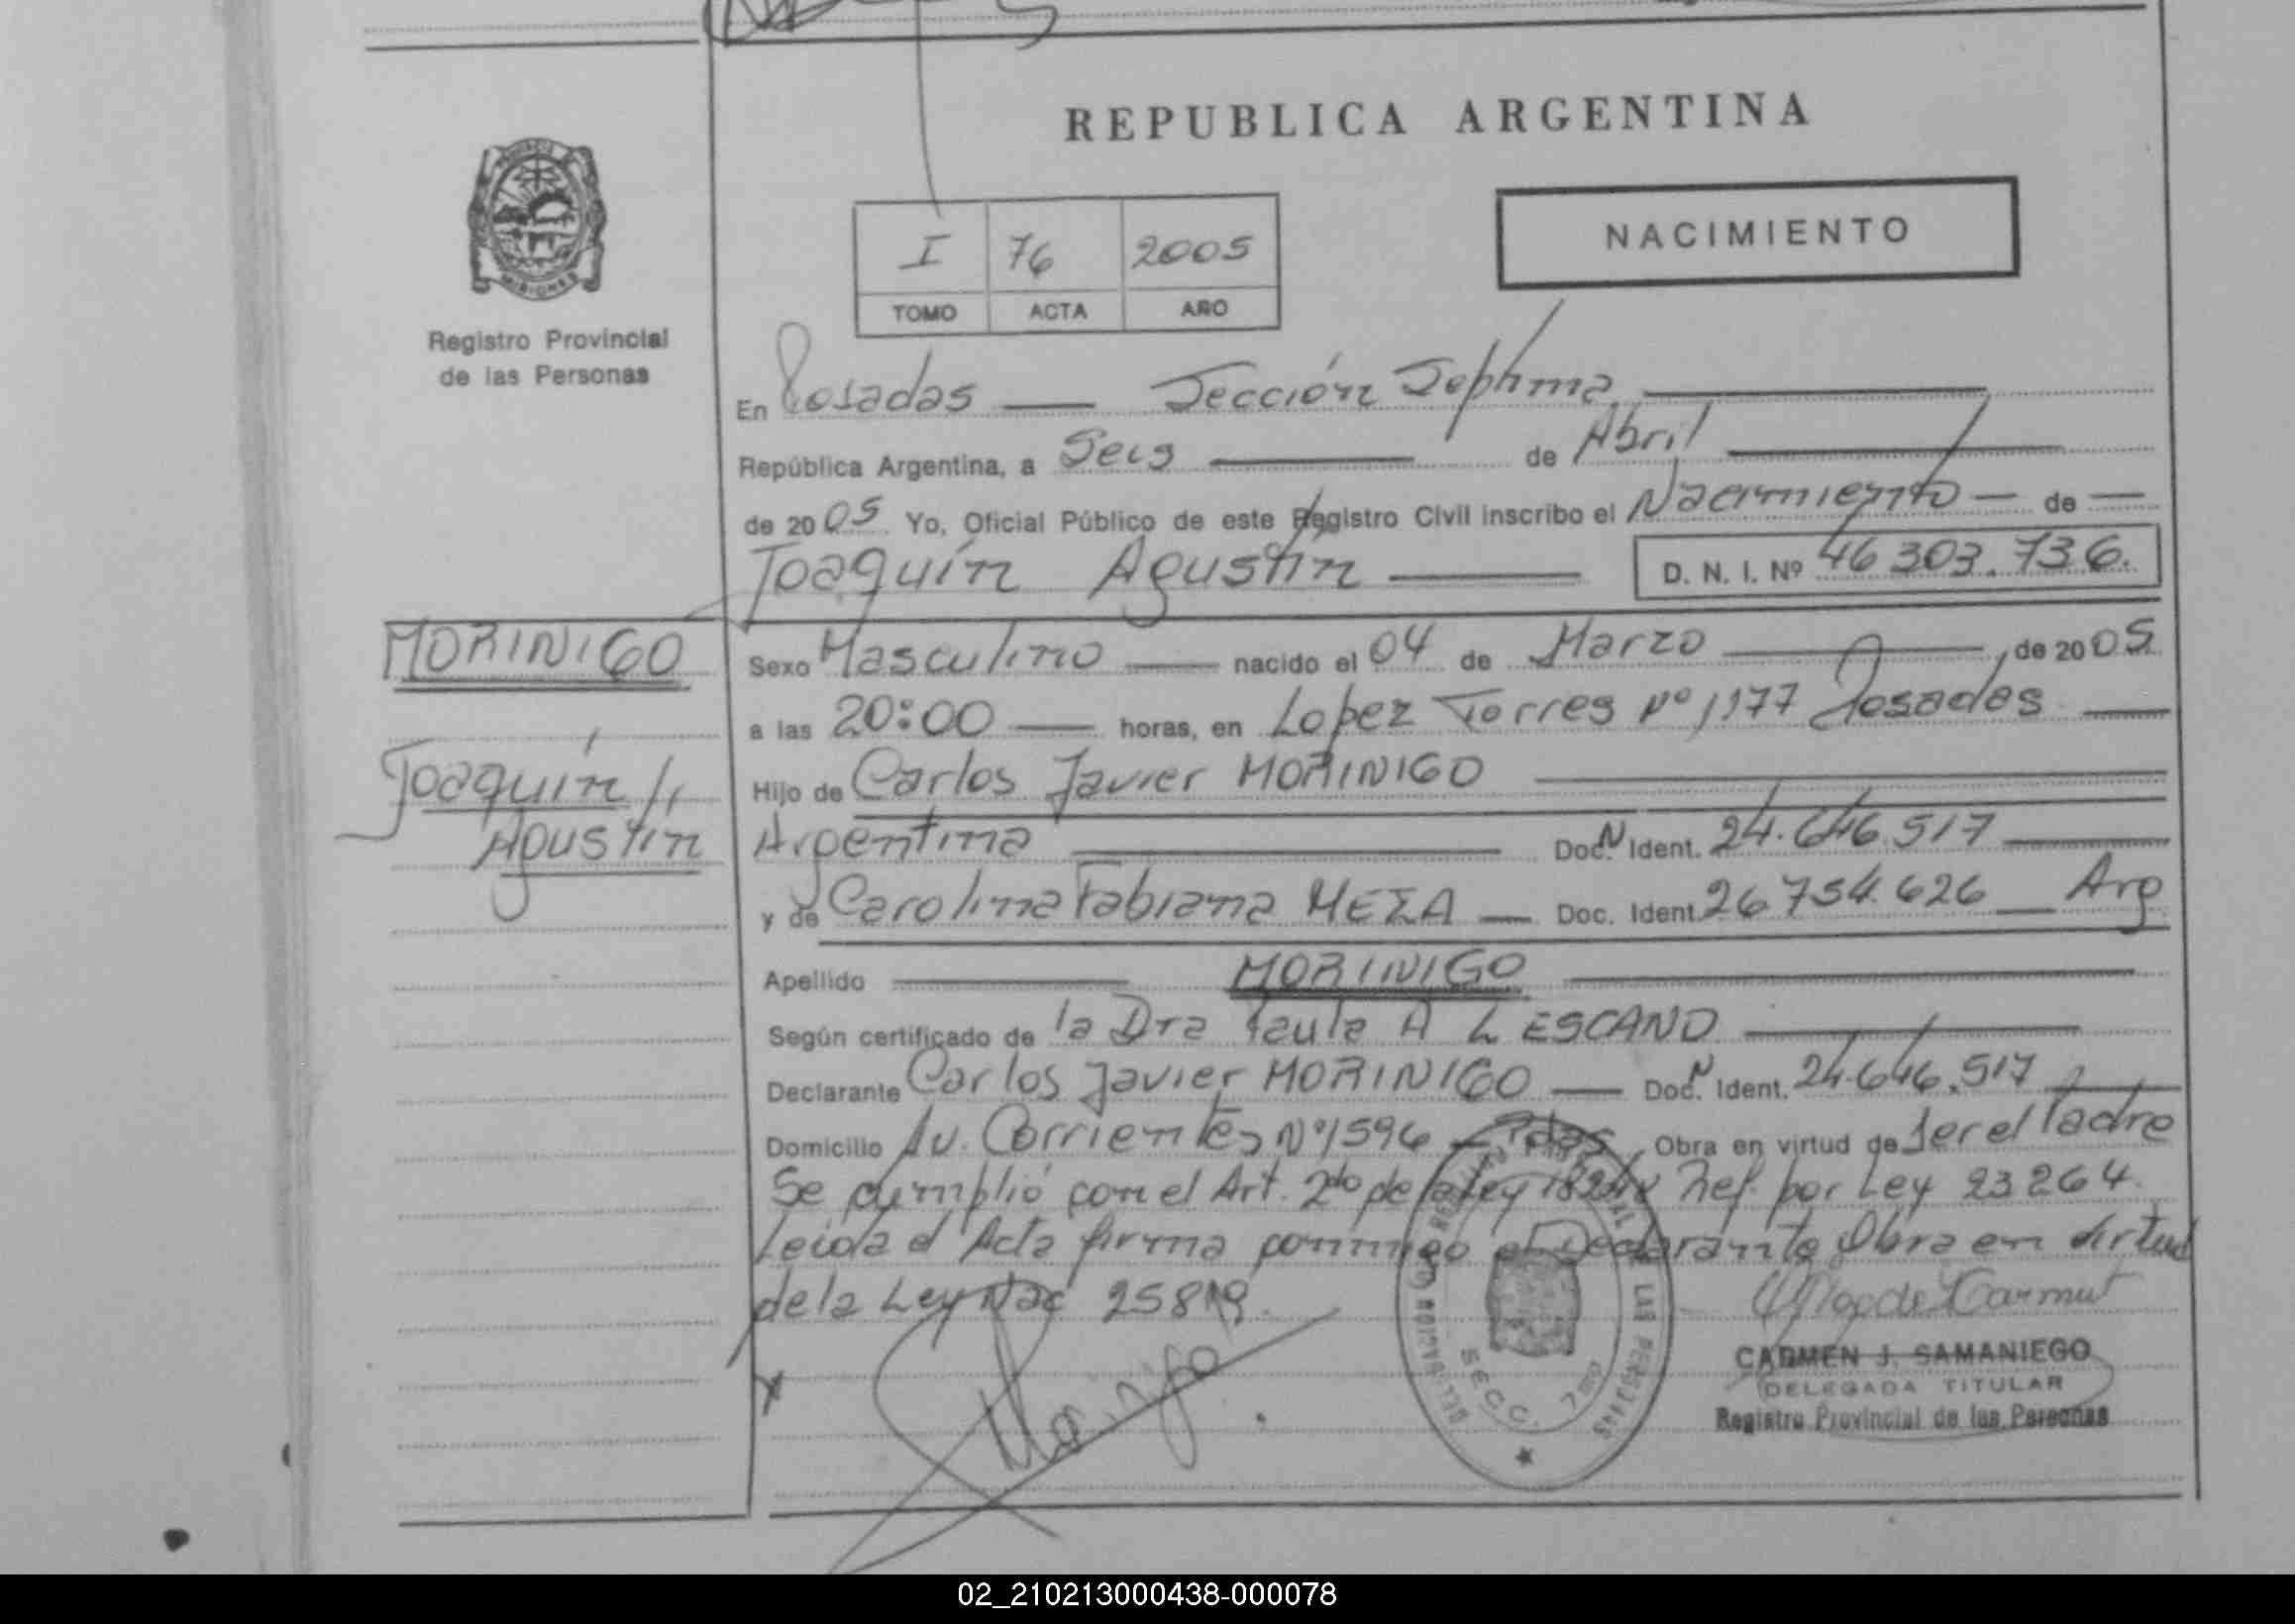 REPUBLICA ARGENTINA
PROVINCIA DE
MISIONES
Registro Provincial
de las Personas
NACIMIENTO
I 76 2005
TOMO ACTA AÑO
En Posadas — Sección Septima
República Argentina, a Seis de Abril
de 2005 Yo, Oficial Público de este Registro Civil inscribo el Nacimiento — de —
Joaquín Agustín D. N. I. Nº 46 303.736.
MORINIGO
Joaquín //
Agustín
Sexo Masculino — nacido el 04 de Marzo, de 2005
a las 20:00 — horas, en Lopez Torres Nº 1177 Posadas —
Hijo de Carlos Javier MORINIGO
Argentina Doc. N Ident. 24.646.517
y de Carolina Fabiana MEZA — Doc. Ident. 26 754.626 — Arg
Apellido MORINIGO
Según certificado de la Dra Paula A LESCANO
Declarante Carlos Javier MORINIGO — Doc. N Ident. 24.646.517
Domicilio Av. Corrientes Nº 1596 – Pdas Obra en virtud de Ser el Padre
Se cumplió con el Art. 2do de la Ley 18248 Ref. por Ley 23264.
Leida el Acta firma conmigo el Declarante Obra en virtud
de la Ley Nac 25819.
SECC. 7
LAS PERSONAS
CARMEN J. SAMANIEGO
DELEGADA TITULAR
Registro Provincial de las Personas
02_210213000438-000078